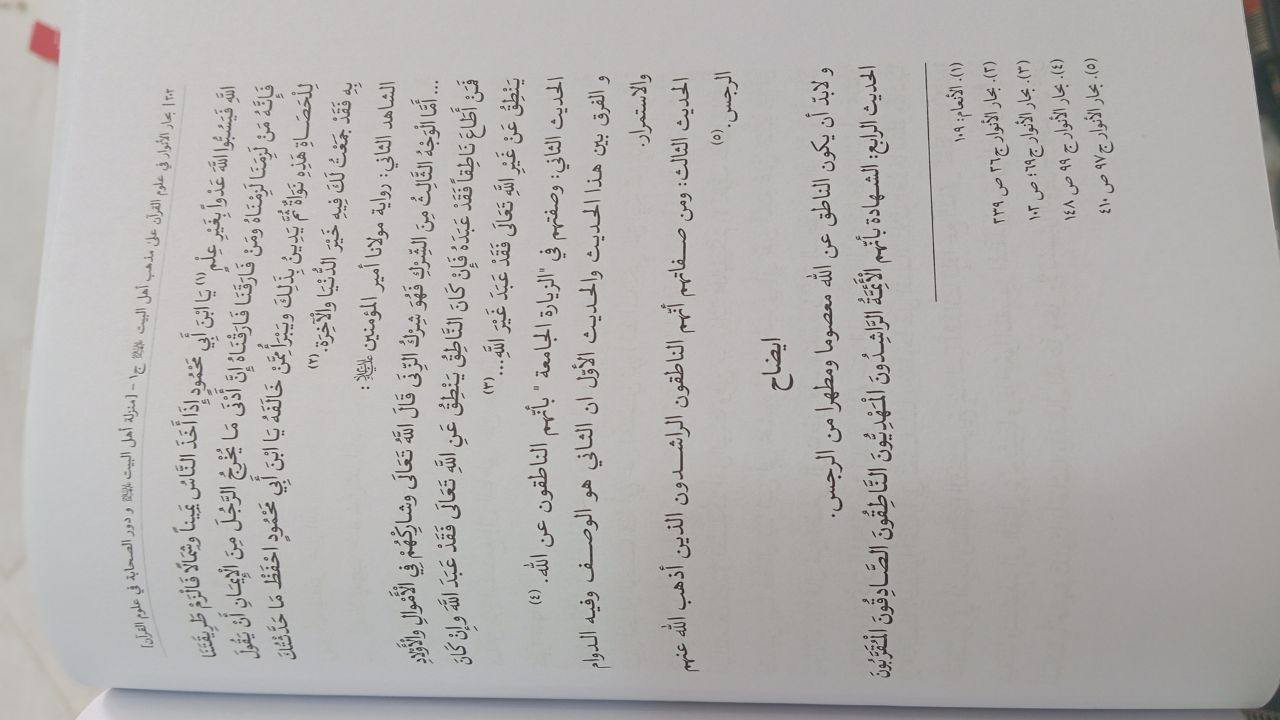 ٢٠٢ | بحار الأنوار في علوم القرآن على مذهب أهل البيت ﷺ ج١ - [منزلة أهل البيت ﷺ و دور الصحابة في علوم القرآن]
اللَّهِ فَيَسُبُّوا اللَّهَ عَدْواً بِغَيْرِ عِلْمٍ (١) يَا ابْنَ أَبِي مَحْمُودٍ إِذَا أَخَذَ النَّاسُ يَمِيناً وَشِمَالًا فَالْزَمْ طَرِيقَتَنَا
فَإِنَّهُ مَنْ لَزِمَنَا لَزِمْنَاهُ وَمَنْ فَارَقَنَا فَارَقْنَاهُ إِنَّ أَدْنَى مَا يُخْرِجُ الرَّجُلَ مِنَ الْإِيمَانِ أَنْ يَقُولَ
لِلْحَصَاةِ هَذِهِ نَوَاةٌ ثُمَّ يَدِينُ بِذَلِكَ وَيَبْرَأُ مِمَّنْ خَالَفَهُ يَا ابْنَ أَبِي مَحْمُودٍ احْفَظْ مَا حَدَّثْتُكَ
بِهِ فَقَدْ جَمَعْتُ لَكَ فِيهِ خَيْرَ الدُّنْيَا وَالْآخِرَةِ. (٢)
الشاهد الثاني: رواية مولانا أمير المؤمنين :
... أَمَّا الْوَجْهُ الثَّالِثُ مِنَ الشِّرْكِ فَهُوَ شِرْكُ الزِّنَى قَالَ اللَّهُ تَعَالَى وَشارِكْهُمْ فِي الْأَمْوالِ وَالْأَوْلادِ
فَمَنْ أَطَاعَ نَاطِقاً فَقَدْ عَبَدَهُ فَإِنْ كَانَ النَّاطِقُ يَنْطِقُ عَنِ اللَّهِ تَعَالَى فَقَدْ عَبَدَ اللَّهَ وَإِنْ كَانَ
يَنْطِقُ عَنْ غَيْرِ اللَّهِ تَعَالَى فَقَدْ عَبَدَ غَيْرَ اللَّهِ... (٣)
الحديث الثاني: وصفتهم في "الزيارة الجامعة" بأنهم الناطقون عن الله. (٤)
و الفرق بين هذا الحديث والحديث الأوّل ان الثاني هو الوصف وفيه الدوام
والاستمرار.
الحديث الثالث: ومن صفاتهم أنّهم الناطقون الراشدون الذين أذهب الله عنهم
الرجس. (٥)
ايضاح
و لابدّ أن يكون الناطق عن الله معصوما ومطهرا من الرجس.
الحديث الرابع: الشهادة بأنّهم الْأَئِمَّةُ الرَّاشِدُونَ الْمَهْدِيُّونَ النَّاطِقُونَ الصَّادِقُونَ الْمُقَرَّبُونَ
(١). الأنعام: ١٠٩
(٢). بحار الأنوار ج ٢٦ ص ٢٣٩
(٣). بحار الأنوار ج٦٩: ص ١٠٢
(٤). بحار الأنوار ج ٩٩ ص ١٤٨
(٥). بحار الأنوار ج ٩٧ ص ٤١٠